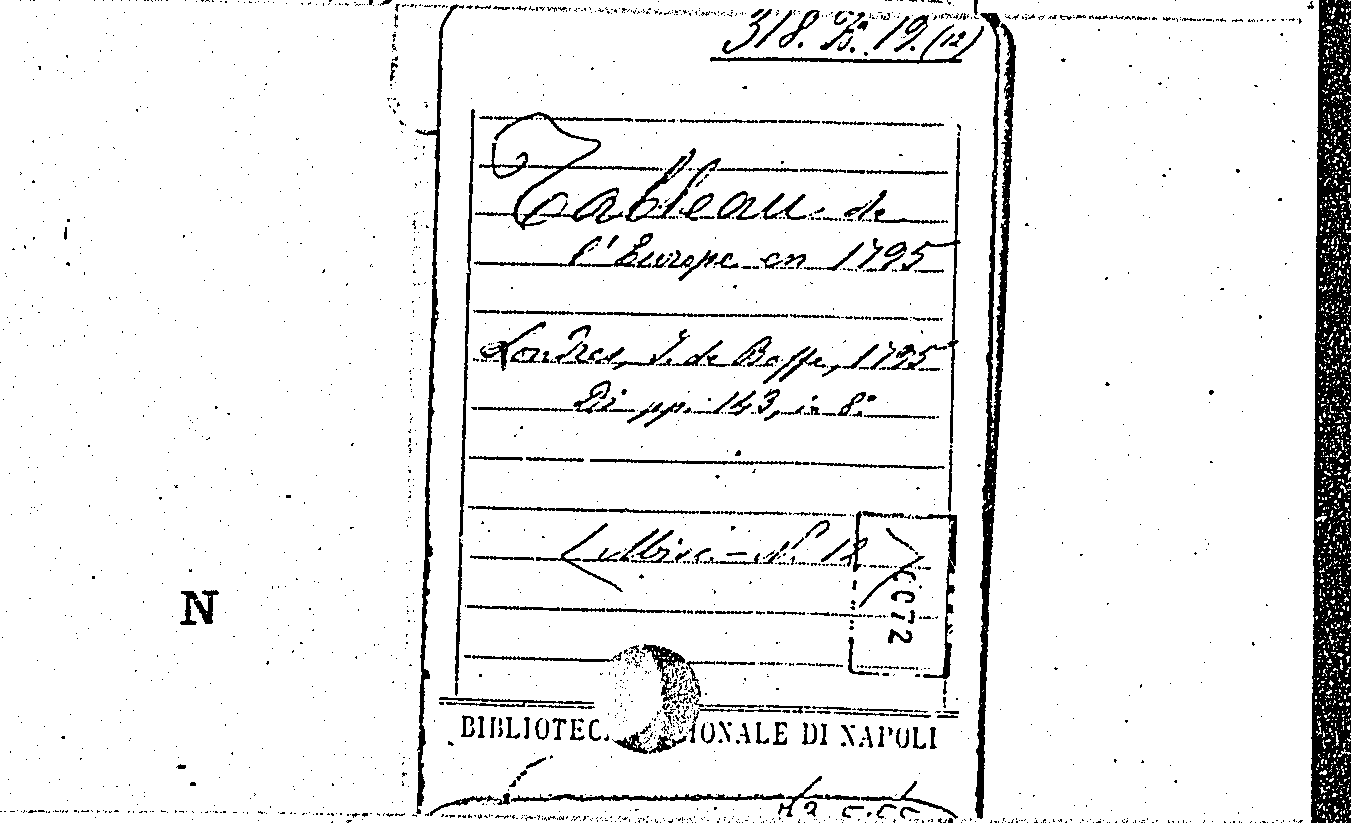 318. B. 19. (12)
Tableau de
l'Europe en 1795
Londres, J. de Boffe, 1795
Di pp. 143, in 8°
Misc. - N. 12
CC72
N
BIBLIOTEC IONALE DI NAPOLI